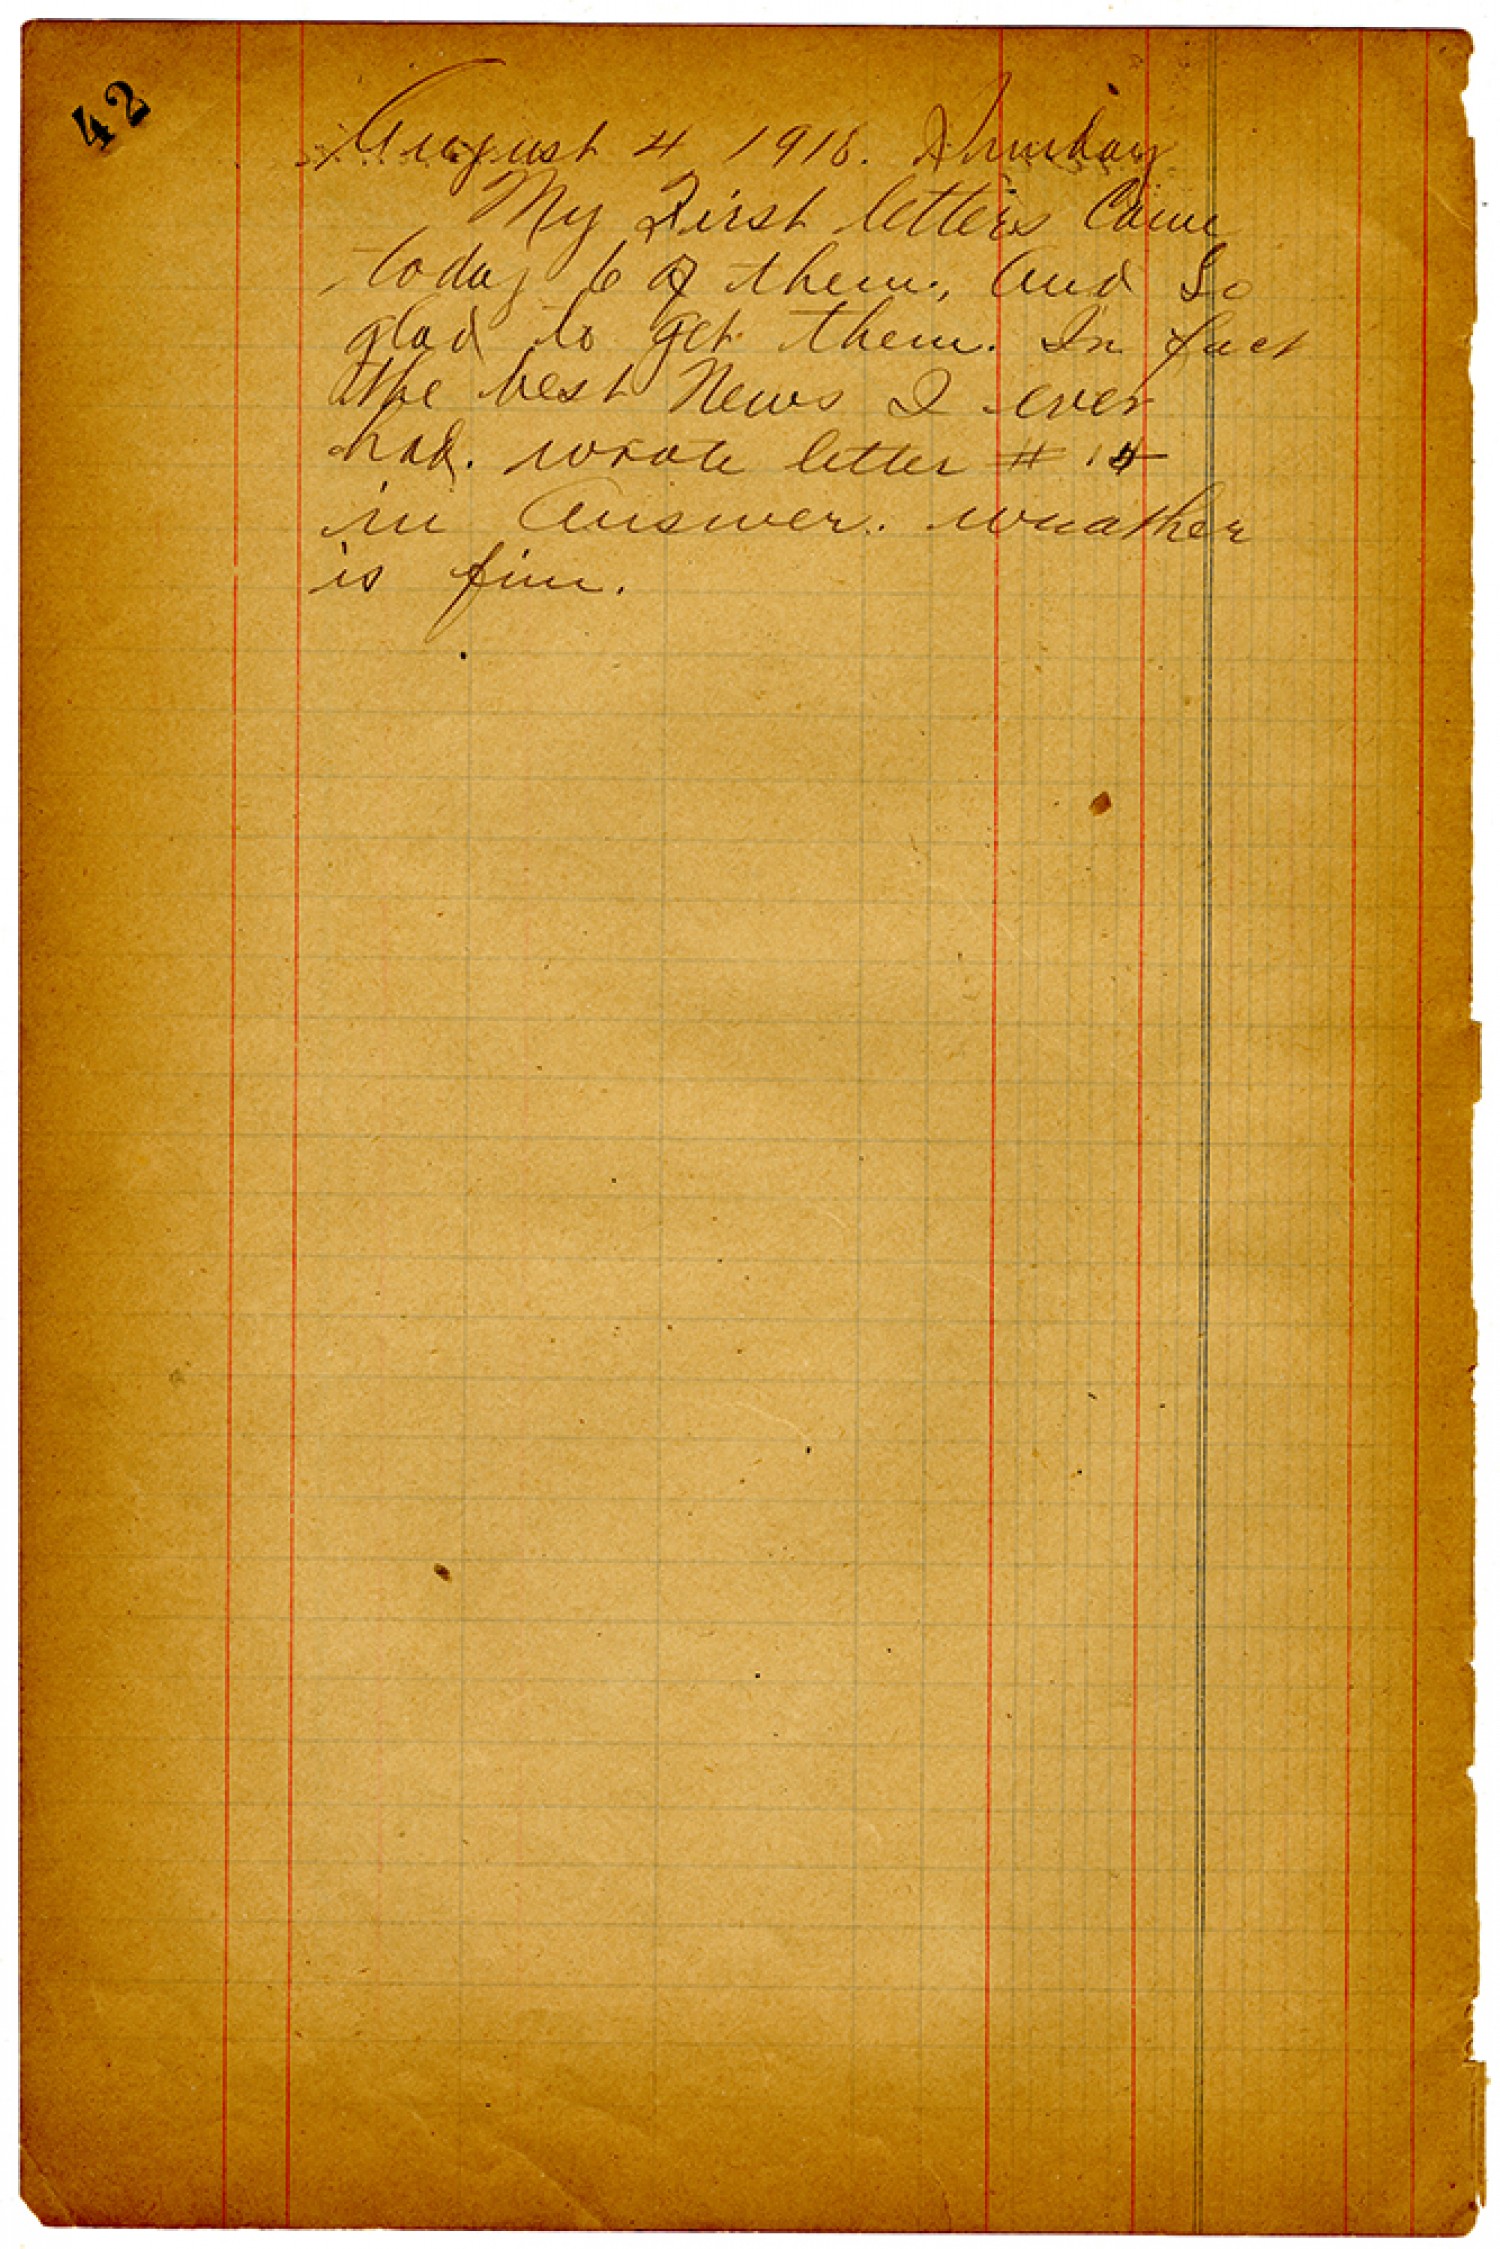 42
August 4 1918. Sunday
My First letters Came
today 6 of them, and So
glad to get them. In fact
the best News I ever
had. wrote letter # 14
in Answer. weather
is fine.